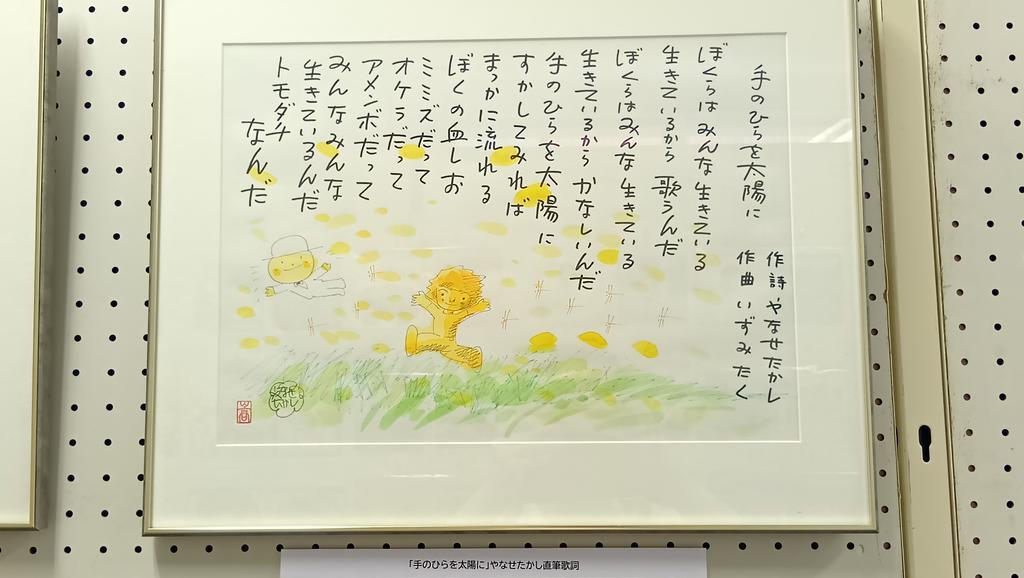 手のひらを太陽に
作詩 やなせたかし
作曲 いずみたく
ぼくらは みんな 生きている
生きているから 歌うんだ
ぼくらはみんな 生きている
生きているから かなしいんだ
手のひらを太陽に
すかしてみれば
まっかに流れる
ぼくの血しお
ミミズだって
オケラだって
アメンボだって
みんなみんな
生きているんだ
トモダチ
なんだ
やなせたかし
「手のひらを太陽に」やなせたかし直筆歌詞